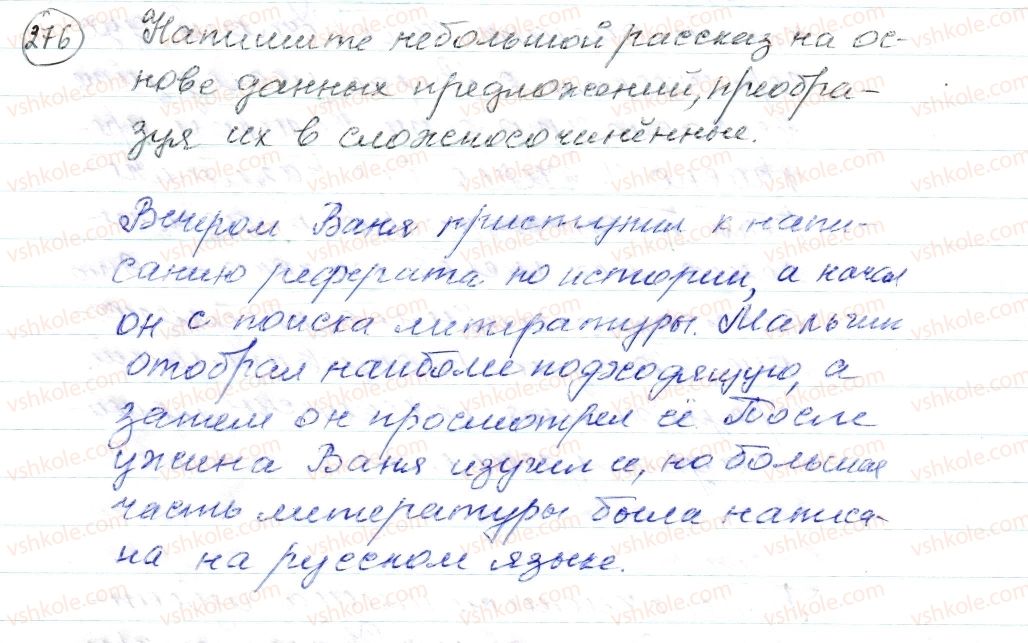 276 Напишите небольшой рассказ на ос-
нове данных предложений, преобра-
зуя их в сложносочинённые.
Вечером Ваня приступил к напи-
санию реферата по истории, а начал
он с поиска литературы. Мальчик
отобрал наиболее подходящую, а
затем он просмотрел её После
ужина Ваня изучил её, но большая
часть литературы была написа-
на на русском языке.